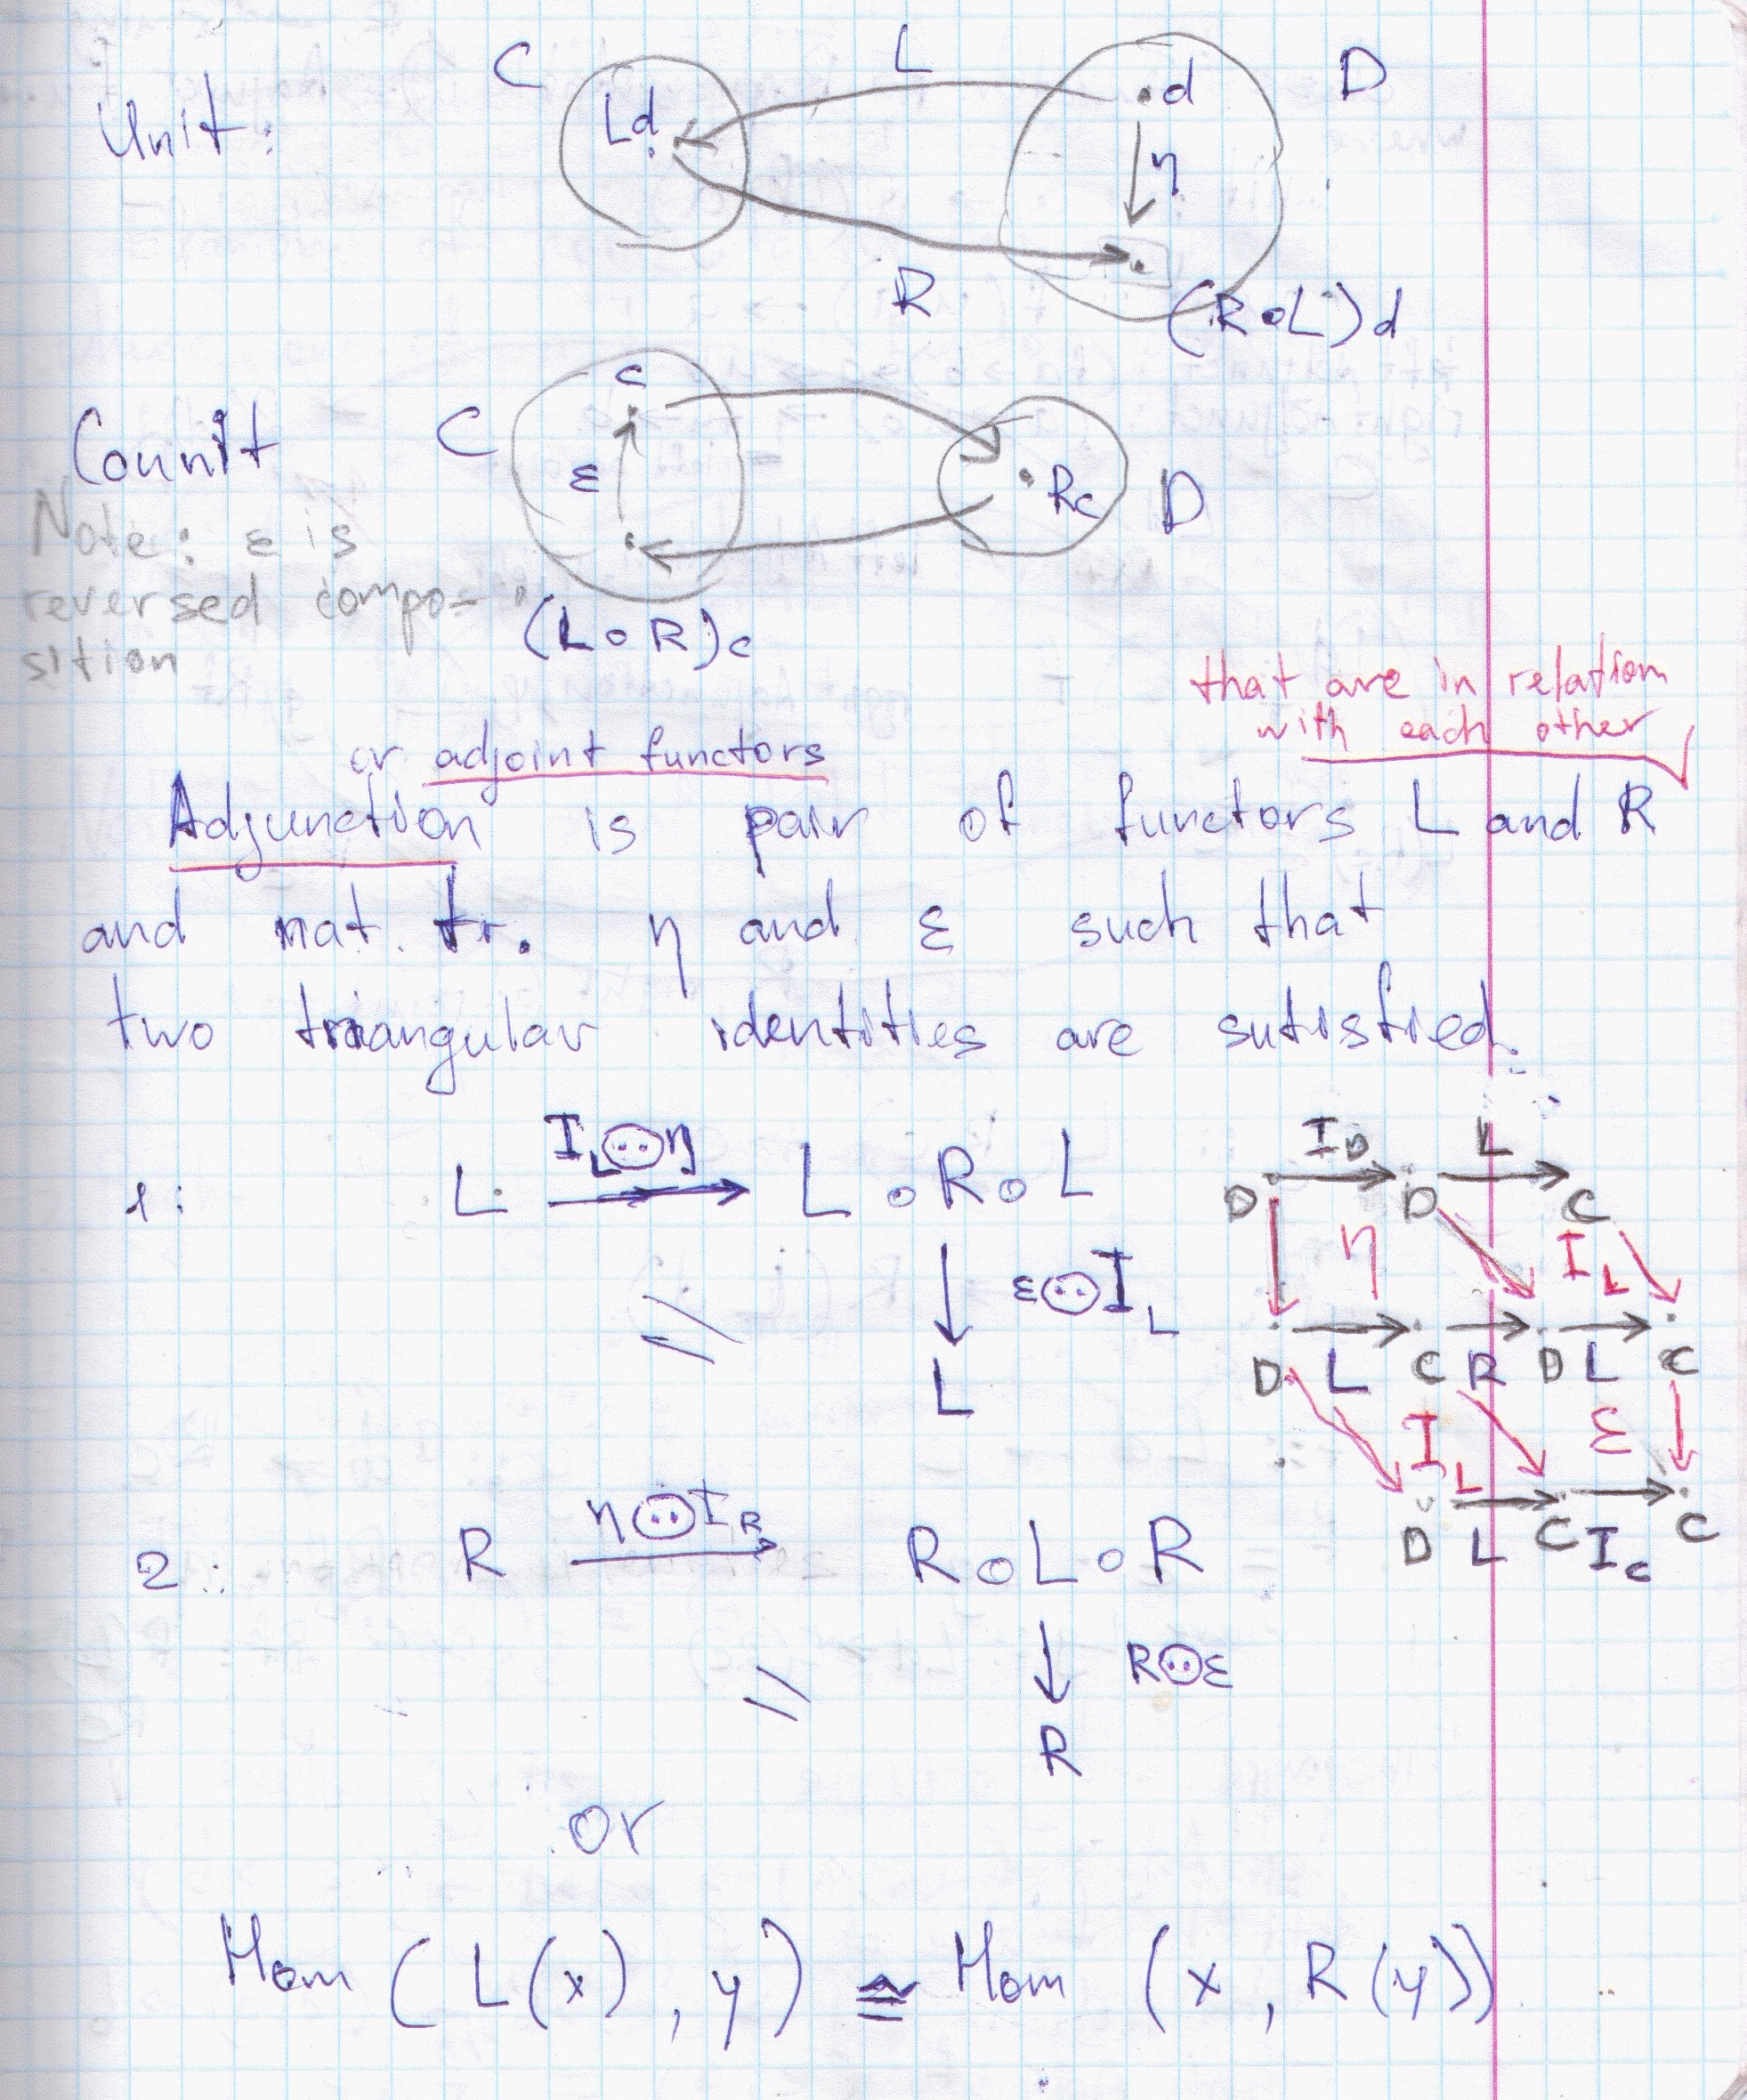 C L D
Unit: Ld d
η
R (R∘L)d
c
Counit C ε Rc D
Note: ε is
reversed compo-
sition
(L∘R)c
that are in relation
with each other
or adjoint functors
Adjunction is pair of functors L and R
and nat. tr. η and ε such that
two triangular identities are sutisfied.
1: L I_L⊙η L∘R∘L
ε⊙I_L
=
L
I_D L
D D C
η I_L
D L C R D L C
I_L ε
D L C I_C C
2: R η⊙I_R R∘L∘R
R⊙ε
=
R
or
Hom (L(x), y) ≅ Hom (x, R(y))